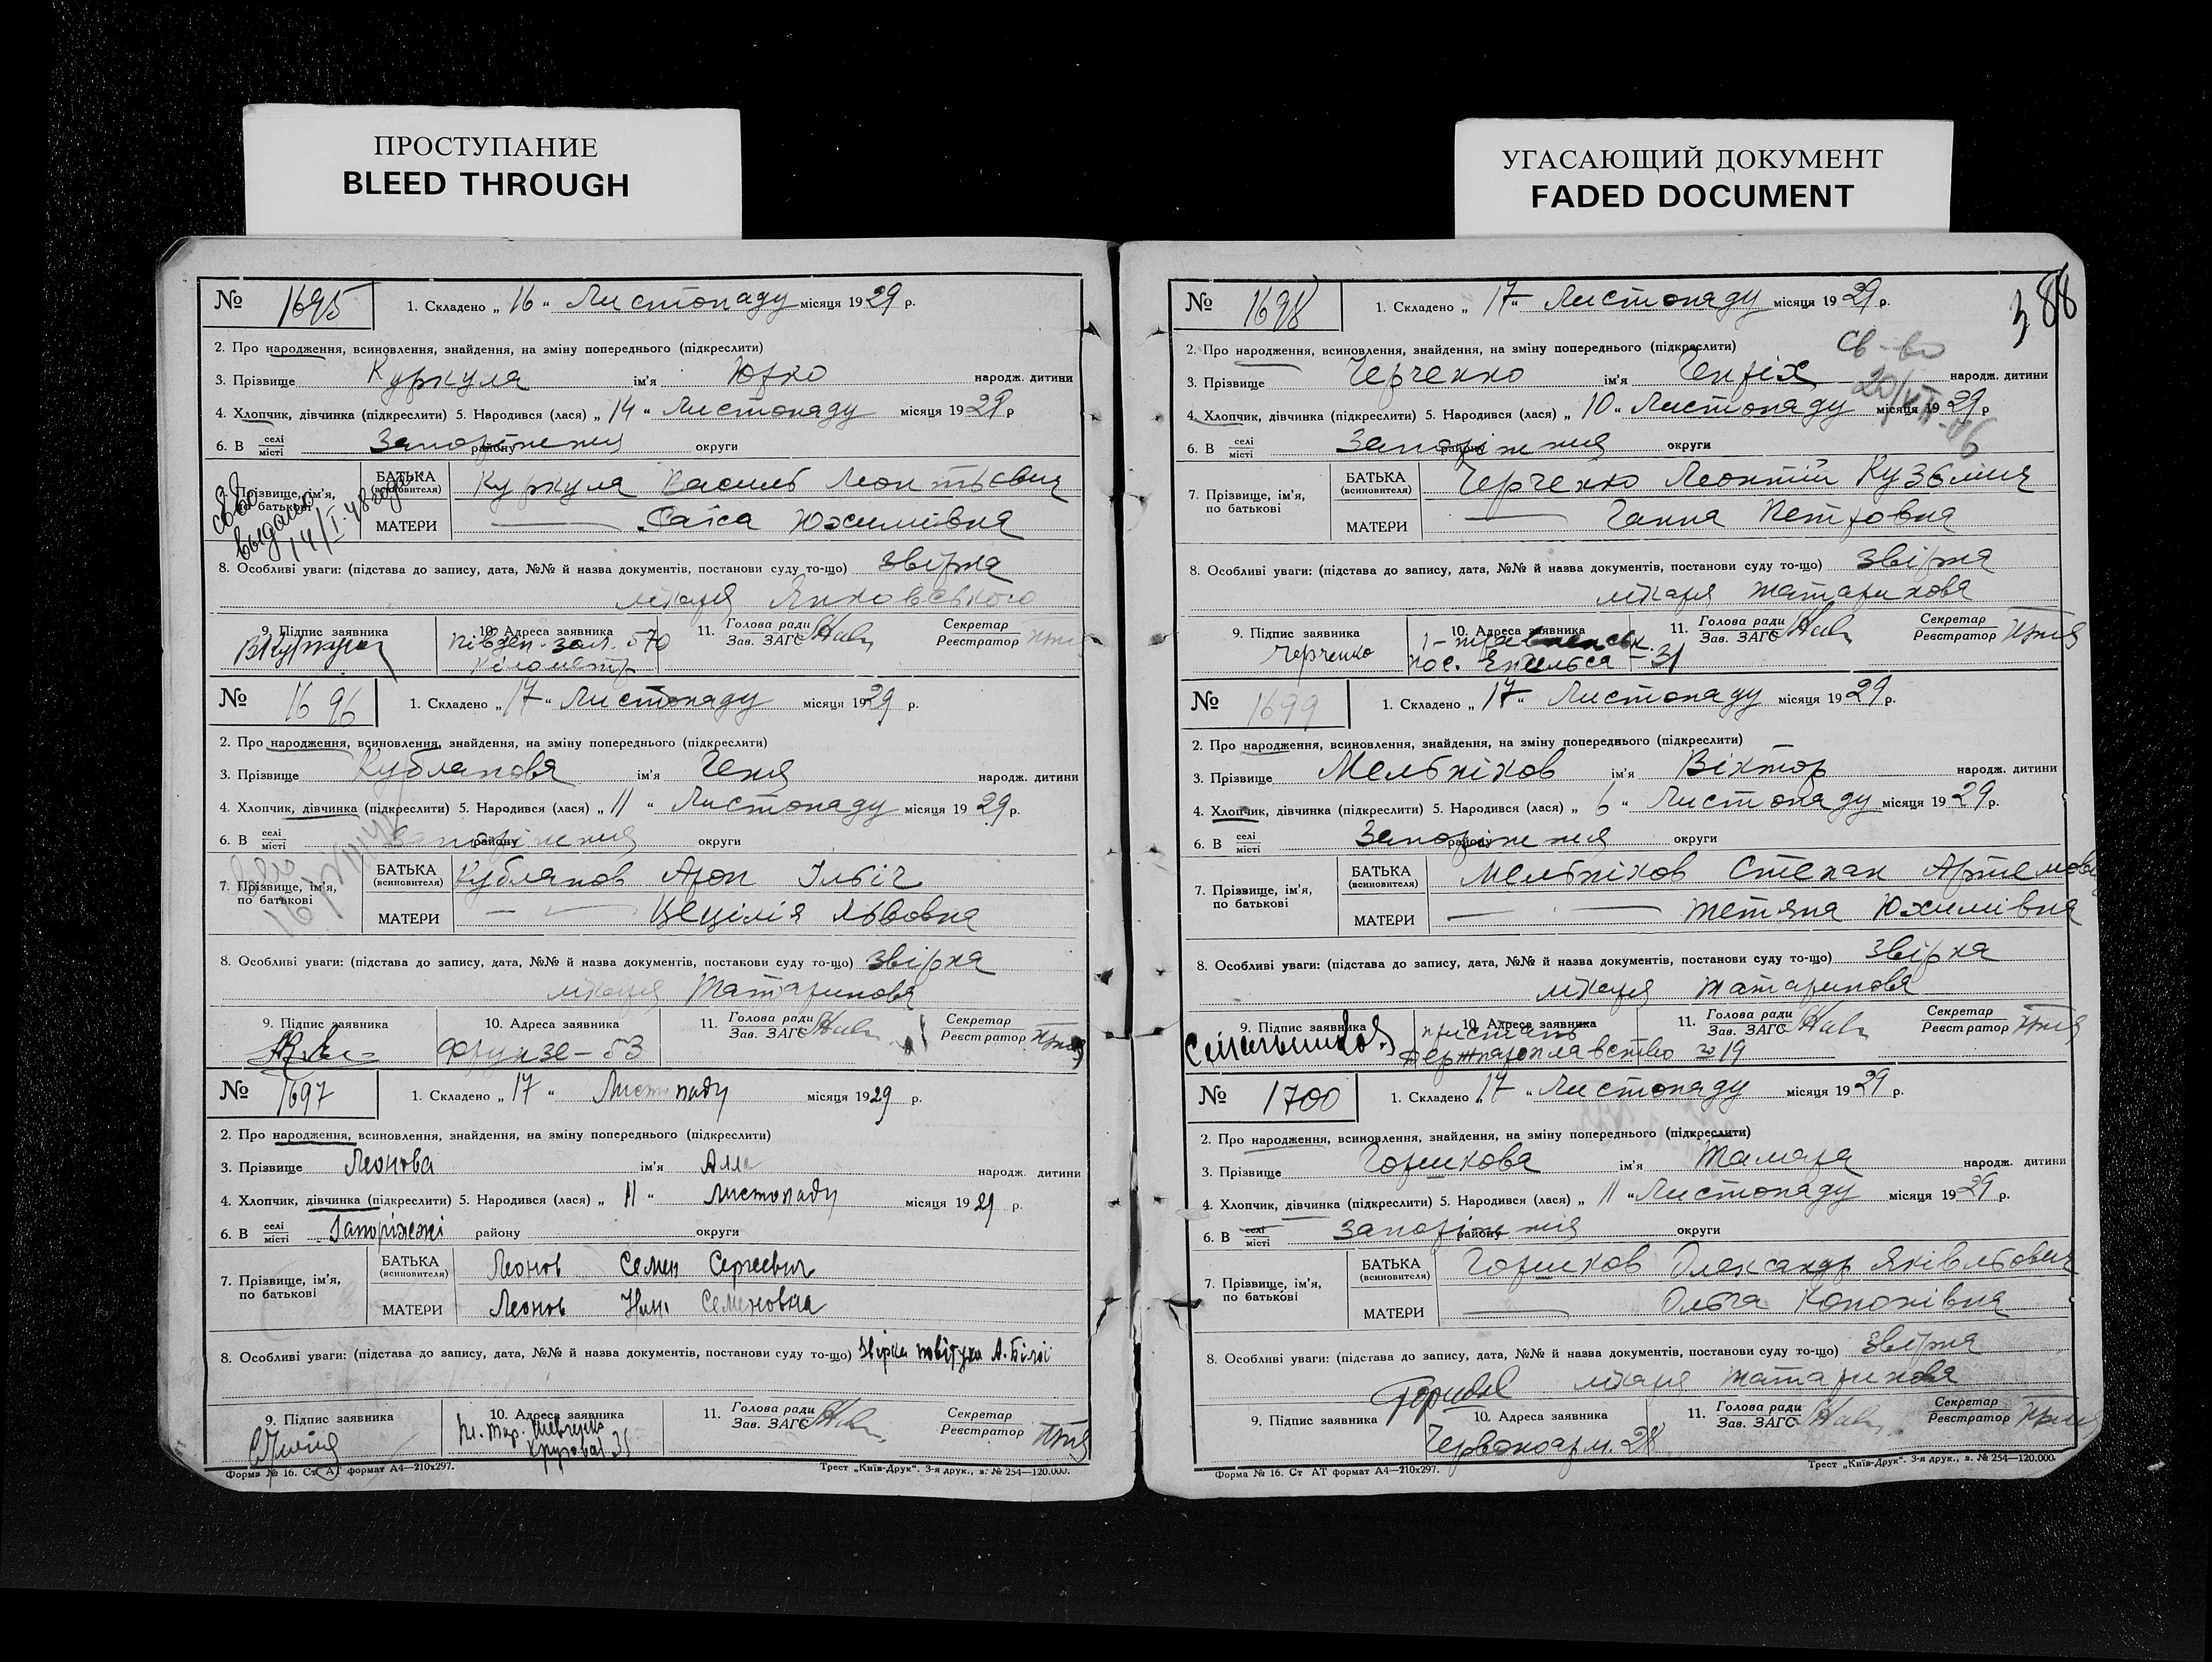 ПРОСТУПАНИЕ
BLEED THROUGH
№ 1695 1. Складено „ 16 “ Листопаду місяця 1929 р.
2. Про народження, всиновлення, знайдення, на зміну попереднього (підкреслити)
3. Прізвище Куркуля ім'я Юрко народж. дитини
4. Хлопчик, дівчинка (підкреслити) 5. Народився (лася) „ 14 “ Листопаду місяця 1929 р
6. В селі місті Запоріжжя району округи
7. Прізвище, ім'я, по батькові БАТЬКА (всиновителя) Куркуля Василь Леонтьевич
МАТЕРИ Раїса Юхимівна
св-во выдано 14/I.48 года
8. Особливі уваги: (підстава до запису, дата, №№ й назва документів, постанови суду то-що) Звірка
лікаря Янковського
9. Підпис заявника 10. Адреса заявника Півден. зал. 570 кілометр 11. Голова ради Зав. ЗАГС Секретар Реєстратор
№ 1696 1. Складено „ 17 “ Листопаду місяця 1929 р.
2. Про народження, всиновлення, знайдення, на зміну попереднього (підкреслити)
3. Прізвище Кубланова ім'я Геня народж. дитини
4. Хлопчик, дівчинка (підкреслити) 5. Народився (лася) „ 11 “ Листопаду місяця 1929 р.
6. В селі місті Запоріжжя району округи
7. Прізвище, ім'я, по батькові БАТЬКА (всиновителя) Кубланов Арон Ільіч
МАТЕРИ Цецілія Львовна
8. Особливі уваги: (підстава до запису, дата, №№ й назва документів, постанови суду то-що) Звірка
лікаря Татаринова
9. Підпис заявника 10. Адреса заявника Фрунзе – 53 11. Голова ради Зав. ЗАГС Секретар Реєстратор
№ 1697 1. Складено „ 17 “ Листопаду місяця 1929 р.
2. Про народження, всиновлення, знайдення, на зміну попереднього (підкреслити)
3. Прізвище Леонова ім'я Алла народж. дитини
4. Хлопчик, дівчинка (підкреслити) 5. Народився (лася) „ 11 “ Листопаду місяця 1929 р.
6. В селі місті Запоріжжі району округи
7. Прізвище, ім'я, по батькові БАТЬКА (всиновителя) Леонов Семен Сергеевич
МАТЕРИ Леонов Семеновна
8. Особливі уваги: (підстава до запису, дата, №№ й назва документів, постанови суду то-що) Звірка повітухи А. Білої
9. Підпис заявника 10. Адреса заявника Шевченко Кругова 35 11. Голова ради Зав. ЗАГС Секретар Реєстратор
Форма № 16. Ст. АТ формат А4—210х297. Трест „Київ-Друк“. 3-я друк., з. № 254—120.000.
УГАСАЮЩИЙ ДОКУМЕНТ
FADED DOCUMENT
388
№ 1698 1. Складено „ 17 “ Листопаду місяця 1929 р.
2. Про народження, всиновлення, знайдення, на зміну попереднього (підкреслити) св-во
3. Прізвище Черченко ім'я Генріх народж. дитини
4. Хлопчик, дівчинка (підкреслити) 5. Народився (лася) „ 10 “ Листопаду місяця 1929 р
6. В селі місті Запоріжжя району округи
7. Прізвище, ім'я, по батькові БАТЬКА (всиновителя) Черченко Леонтій Кузьмич
МАТЕРИ Ганна Петровна
8. Особливі уваги: (підстава до запису, дата, №№ й назва документів, постанови суду то-що) Звірка
лікаря Татаринова
9. Підпис заявника Черченко 10. Адреса заявника пос. Енгельса – 31 11. Голова ради Зав. ЗАГС Секретар Реєстратор
№ 1699 1. Складено „ 17 “ Листопаду місяця 1929 р.
2. Про народження, всиновлення, знайдення, на зміну попереднього (підкреслити)
3. Прізвище Мельніков ім'я Віктор народж. дитини
4. Хлопчик, дівчинка (підкреслити) 5. Народився (лася) „ 6 “ Листопаду місяця 1929 р.
6. В селі місті Запоріжжя району округи
7. Прізвище, ім'я, по батькові БАТЬКА (всиновителя) Мельніков Степан Артемович
МАТЕРИ Тетяна Юхимівна
8. Особливі уваги: (підстава до запису, дата, №№ й назва документів, постанови суду то-що) Звірка
лікаря Татаринова
9. Підпис заявника 10. Адреса заявника пристань Держпароплавство 19 11. Голова ради Зав. ЗАГС Секретар Реєстратор
№ 1700 1. Складено „ 17 “ Листопаду місяця 1929 р.
2. Про народження, всиновлення, знайдення, на зміну попереднього (підкреслити)
3. Прізвище Горшкова ім'я Тамара народж. дитини
4. Хлопчик, дівчинка (підкреслити) 5. Народився (лася) „ 11 “ Листопаду місяця 1929 р.
6. В селі місті Запоріжжя району округи
7. Прізвище, ім'я, по батькові БАТЬКА (всиновителя) Горшков Олександр
МАТЕРИ Ольга Кононівна
8. Особливі уваги: (підстава до запису, дата, №№ й назва документів, постанови суду то-що) Звірка
лікаря Татаринова
9. Підпис заявника 10. Адреса заявника Червоноарм. 28 11. Голова ради Зав. ЗАГС Секретар Реєстратор
Форма № 16. Ст АТ формат А4—210х297. Трест „Київ-Друк“. 3-я друк., з. № 254—120.000.